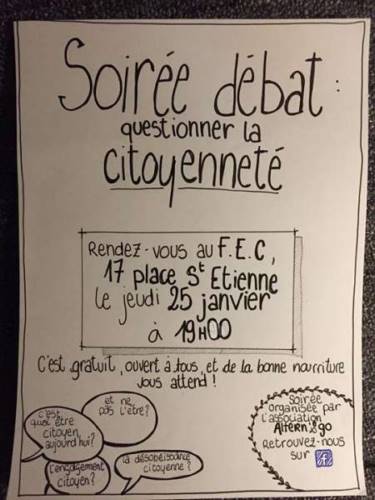 Soirée débat :
questionner la
citoyenneté
Rendez-vous au F.E.C,
17 place St Etienne
le jeudi 25 janvier
à 19H00
C'est gratuit, ouvert à tous, et de la bonne nourriture
vous attend !
c'est
quoi être
citoyen,
aujourd'hui?
et ne
pas l'être?
l'engagement
citoyen?
la désobéissance
citoyenne?
Soirée
organisée par
l'association
Altern'&go
Retrouvez-nous
sur f